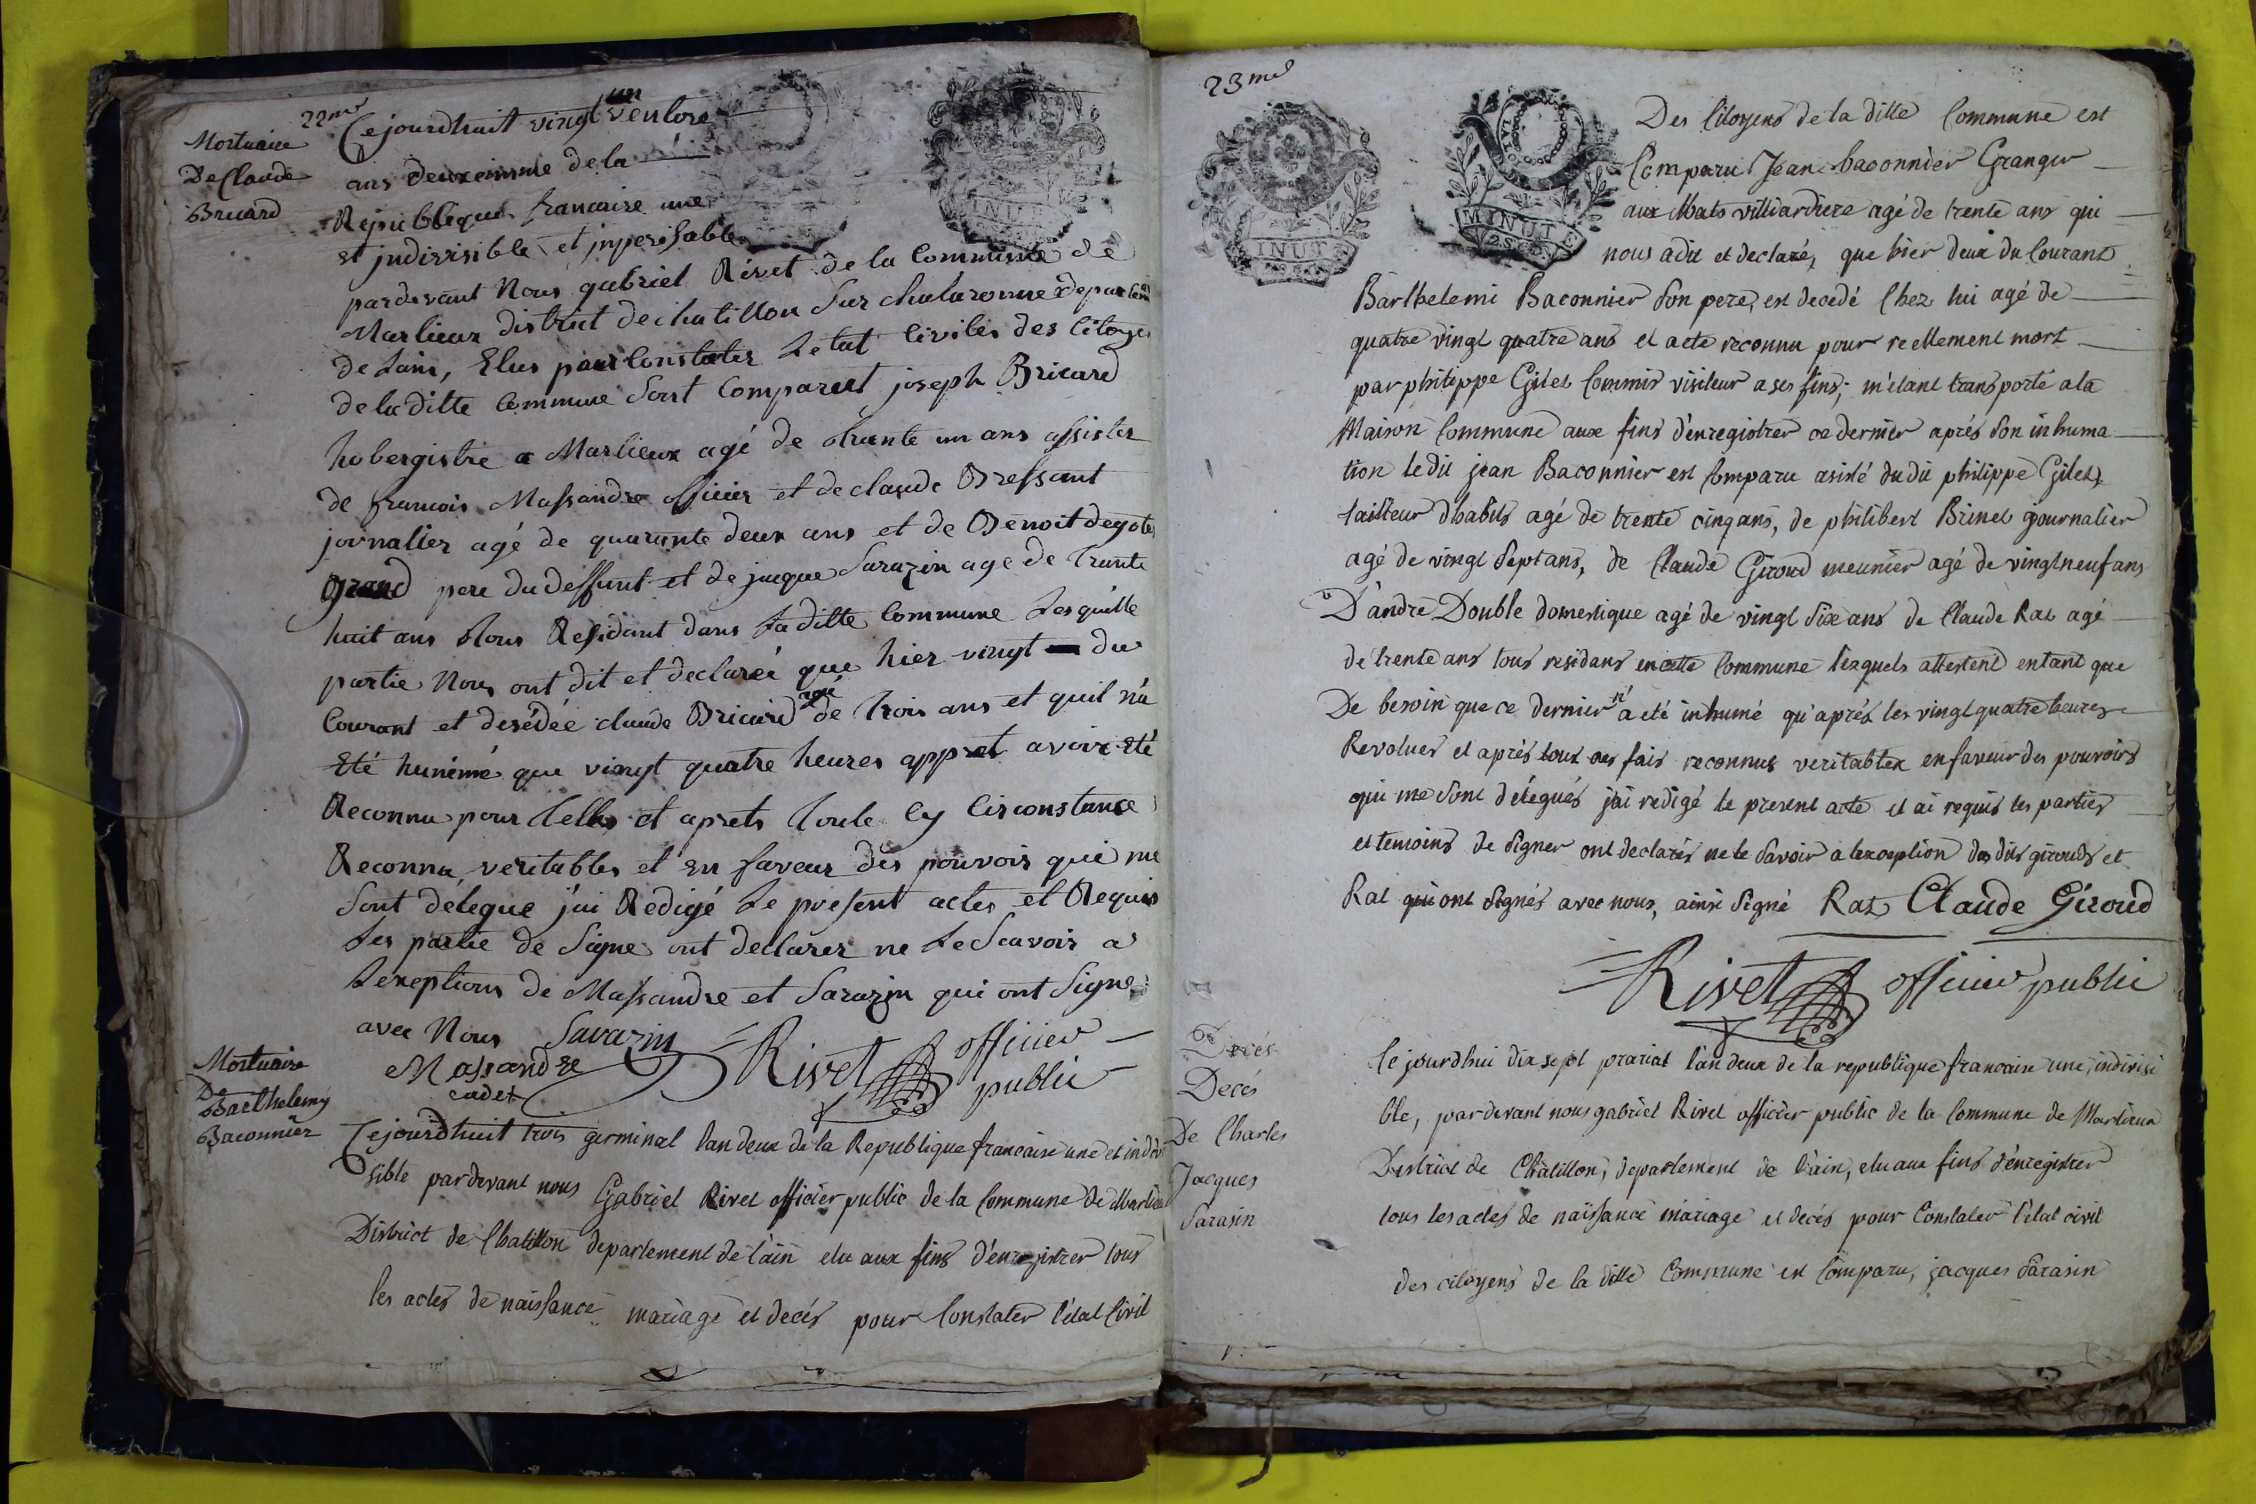 22me
Mortuaire
De Claude
Bricard
Cejourdhuit vingt un ventose
ans deuxcimme de la
Republique francaise une
et indivisible et inperisable
pardevant Nous gabriel Rivet de la Commune de
Marlieux district de chatillon Sur chalaronne departem
de Lain, Elus pour Constater Letat Civiles des Citoye
de la ditte Commune Sont Comparut joseph Bricard
hobergistre a Marlieux agé de trante un ans assister
de francois Massandre officier et de claude Bressant
journalier agé de quarante deux ans et de Benoit degote
grand pere du deffunt et de jacque Sarazin age de Trante
huit ans tous Residant dans Laditte Commune Lesquelle
partie Nous ont dit et declareé que hier vingt du
Courant et desédée claude Bricard agé de trois ans et quil n'a
Eté hunimé que vingt quatre heures appret avoir Eté
Reconnu pour telles et aprets toute Cy Circonstance
Reconnu veritables et En faveur des pouvois qui me
Sont délegué j'ai Redigé Le present actes et Requis
Les partie de Signe ont declarer ne Le Scavoir a
Lexeptions de Massandre et Sarazin qui ont Signe
avec Nous Sarazin
Massandre
cadet
Rivet officier
public
Mortuaire
De
Barthelemy
Baconnier
Cejourdhuit trois germinal lan deux de la Republique francaise une et indivi
sible pardevant nous Gabriel Rivet officier public de la Commune de Marlieux
District de Chatillon departement de l'ain elu aux fins d'enregistrer tous
les actes de naissance mariage et decés pour Constater l'état Civil
23me
MINUTE
MINUTE
Des Citoyens de la ditte Commune est
Comparu Jean baconnier Granger
aux Mats villiardiere agé de trente ans qui
nous a dit et declaré, que hier deux du Courant
Barthelemi Baconnier Son pere, est decedé Chez lui agé de
quatre vingt quatre ans et a eté reconnu pour reellement mort
par philippe Gilet Commis visiteur a ses fins; m'etant transporté a la
Maison Commune aux fins d'enregistrer ce dernier aprés Son inhuma
tion le dit jean Baconnier est Comparu asisté du dit philippe Gilet,
tailleur d'habits agé de trente cinq ans, de philibert Brinet journalier
agé de vingt Sept ans, de Claude Giroud meunier agé de vingt neuf ans
D'andre Double domestique agé de vingt Six ans de Claude Rat agé
de trente ans tous residans en cette Commune lesquels attestent en tant que
De besoin que ce dernier n'a eté inhumé qu'aprés les vingt quatre heures
Revolues et aprés tous ces fais reconnus veritables en faveur des pouvoirs
qui me Sont délegués j'ai redigé le present acte et ai requis les parties
et temoins de Signer ont declarés ne le Savoir a lexception des dits giroud et
Rat qui ont Signés avec nous, ainsi Signé Rat Claude Giroud
Rivet officier public
Decés
Decés
De Charles
Jacques
Sarasin
Ce jourdhui dix sept prarial l'an deux de la republique francaise une, indivisi
ble, pardevant nous gabriel Rivet officier public de la Commune de Marlieux
District de Châtillon, departement de l'ain, elu aux fins d'énregistrer
tous les actes de naissance mariage et decés pour Constater l'état civil
des citoyens de la ditte Commune est Comparu, jacques Sarasin